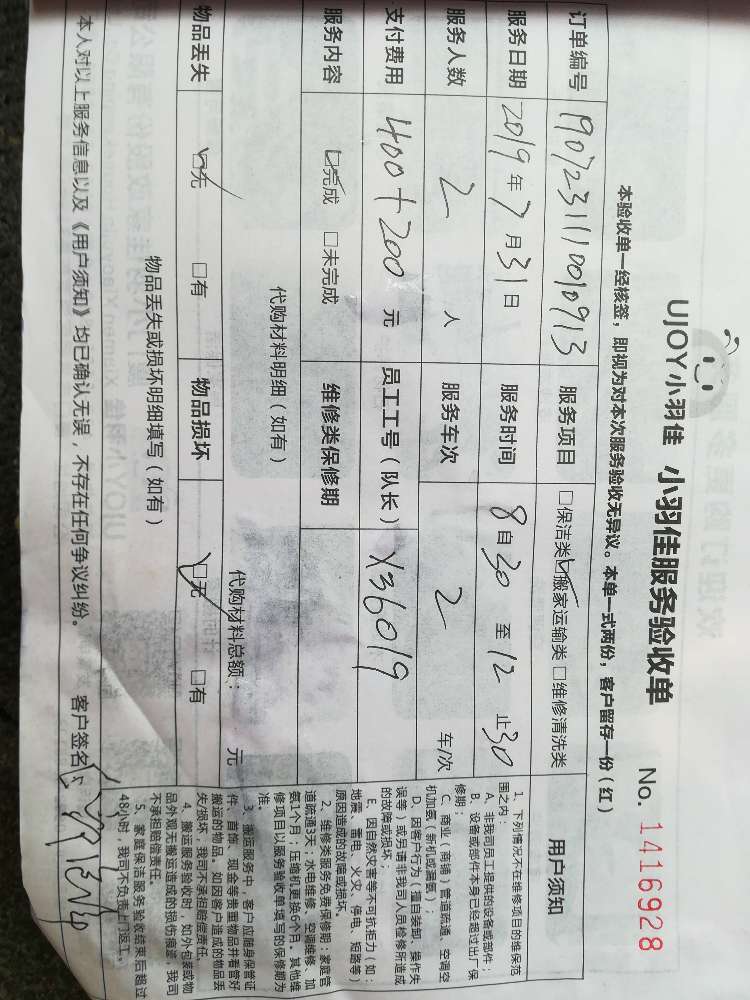 UJOY小羽佳 小羽佳服务验收单 No. 1416928
本验收单一经核签，即视为对本次服务验收无异议。本单一式两份，客户留存一份（红）
订单编号 1907231110010913 服务项目 □保洁类☑搬家运输类□维修清洗类
服务日期 2019年7月31日 服务时间 8自30至12止30
服务人数 2 人 服务车次 2 车/次
支付费用 400+200 元 员工工号（队长） X36019
服务内容 ☑完成 □未完成 维修类保修期
代购材料明细（如有） 代购材料总额： 元
物品丢失 ☑无 □有 物品损坏 ☑无 □有
物品丢失或损坏明细填写（如有）
本人对以上服务信息以及《用户须知》均已确认无误，不存在任何争议纠纷。 客户签名：
用户须知
1、下列情况不在维修项目的维保范
围之内：
A、非我司员工提供的设备或部件；
B、设备或部件本身已经超过出厂保
修期；
C、商业（商铺）管道疏通、空调空
机加氨（新机或漏氨）；
D、因客户行为（擅自装卸、操作失
误等）或另请非我司人员检修所造成
的故障或损坏；
E、因自然灾害等不可抗拒力（如：
地震、雷电、火灾、停电、短路等）
原因造成的故障或损坏。
2、维修类服务免费保修期：家庭管
道疏通3天；水电维修、空调维修、加
氨1个月；压缩机更换6个月。其他维
修项目以服务验收单填写的保修期为
准。
3、搬运服务中，客户应随身保管证
件、首饰、现金等贵重物品并看管好
搬运的物品，如因客户造成的物品丢
失/损坏，我司不承担赔偿责任。
4、搬运服务验收时，如外包装或物
品外观无搬运造成的损伤痕迹，我司
不承担赔偿责任
5、家庭保洁服务验收结束后超过
48小时，我司不负责上门返工。